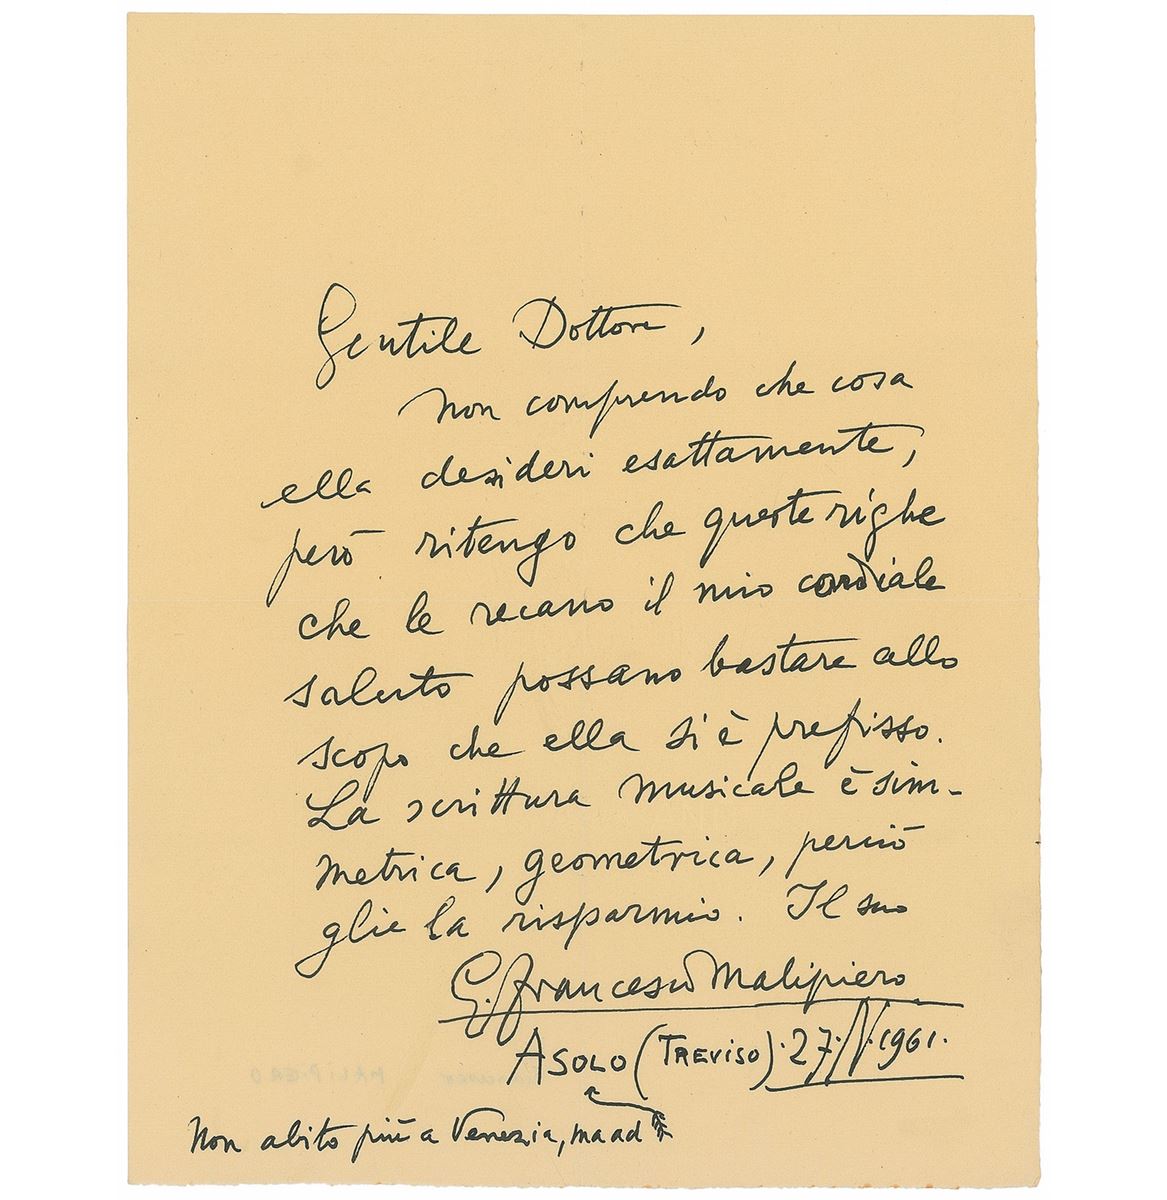 Gentile Dottore,
Non comprendo che cosa
ella desideri esattamente,
però ritengo che queste righe
che le recano il mio cordiale
saluto possano bastare allo
scopo che ella si è prefisso.
La scrittura musicale è sim-
metrica, geometrica, perciò
glie la risparmio. Il suo
G. Francesco Malipiero
ASOLO (TREVISO) 27. IV. 1961.
Non abito più a Venezia, ma ad
MALIPIERO